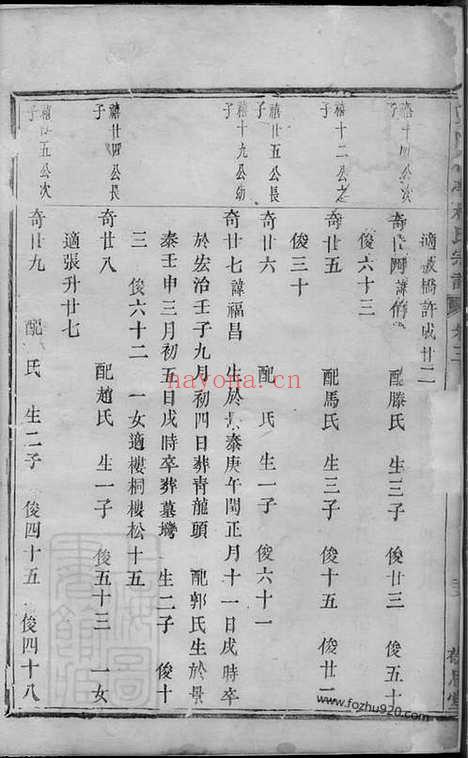 適 橋許成廿二
禧十四公次子
奇廿四 諱伯 配滕氏 生三子 俊廿三 俊五十
俊六十三
禧十二公之子
奇廿五 配馬氏 生三子 俊十五 俊廿二
俊三十
禧廿五公長子
奇廿六 配 氏 生一子 俊六十一
禧十九公幼子
奇廿七 諱福昌 生於 泰庚午閏正月十一日戌時卒
於宏治壬子九月初四日葬青龍頭 配郭氏生於景
泰壬申三月初五日戌時卒葬墓塆 生二子 俊十
三 俊六十二 一女適樓桐樓松十五
禧廿四公長子
奇廿八 配趙氏 生一子 俊五十三 一女
適張升廿七
禧廿五公次子
奇廿九 配 氏 生二子 俊四十五 俊四十八
氏宗譜 卷三
堂
nayona.cn
www.fozhu920.com